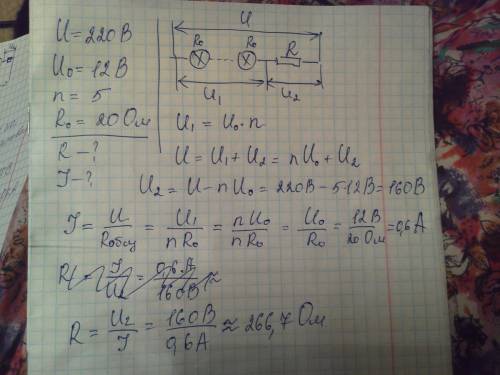 U = 220В
U₀ = 12В
n = 5
R₀ = 20 Ом
R – ?
I – ?
U
R₀ R₀ R
U₁ U₂
U₁ = U₀·n
U = U₁ + U₂ = nU₀ + U₂
U₂ = U – nU₀ = 220В – 5·12В = 160В
I = U/Rобщ = U₁/nR₀ = nU₀/nR₀ = U₀/R₀ = 12В/20 Ом = 0,6А
R = I/U₂ = 0,6А/160В ≈
R = U₂/I = 160В/0,6А ≈ 266,7 Ом